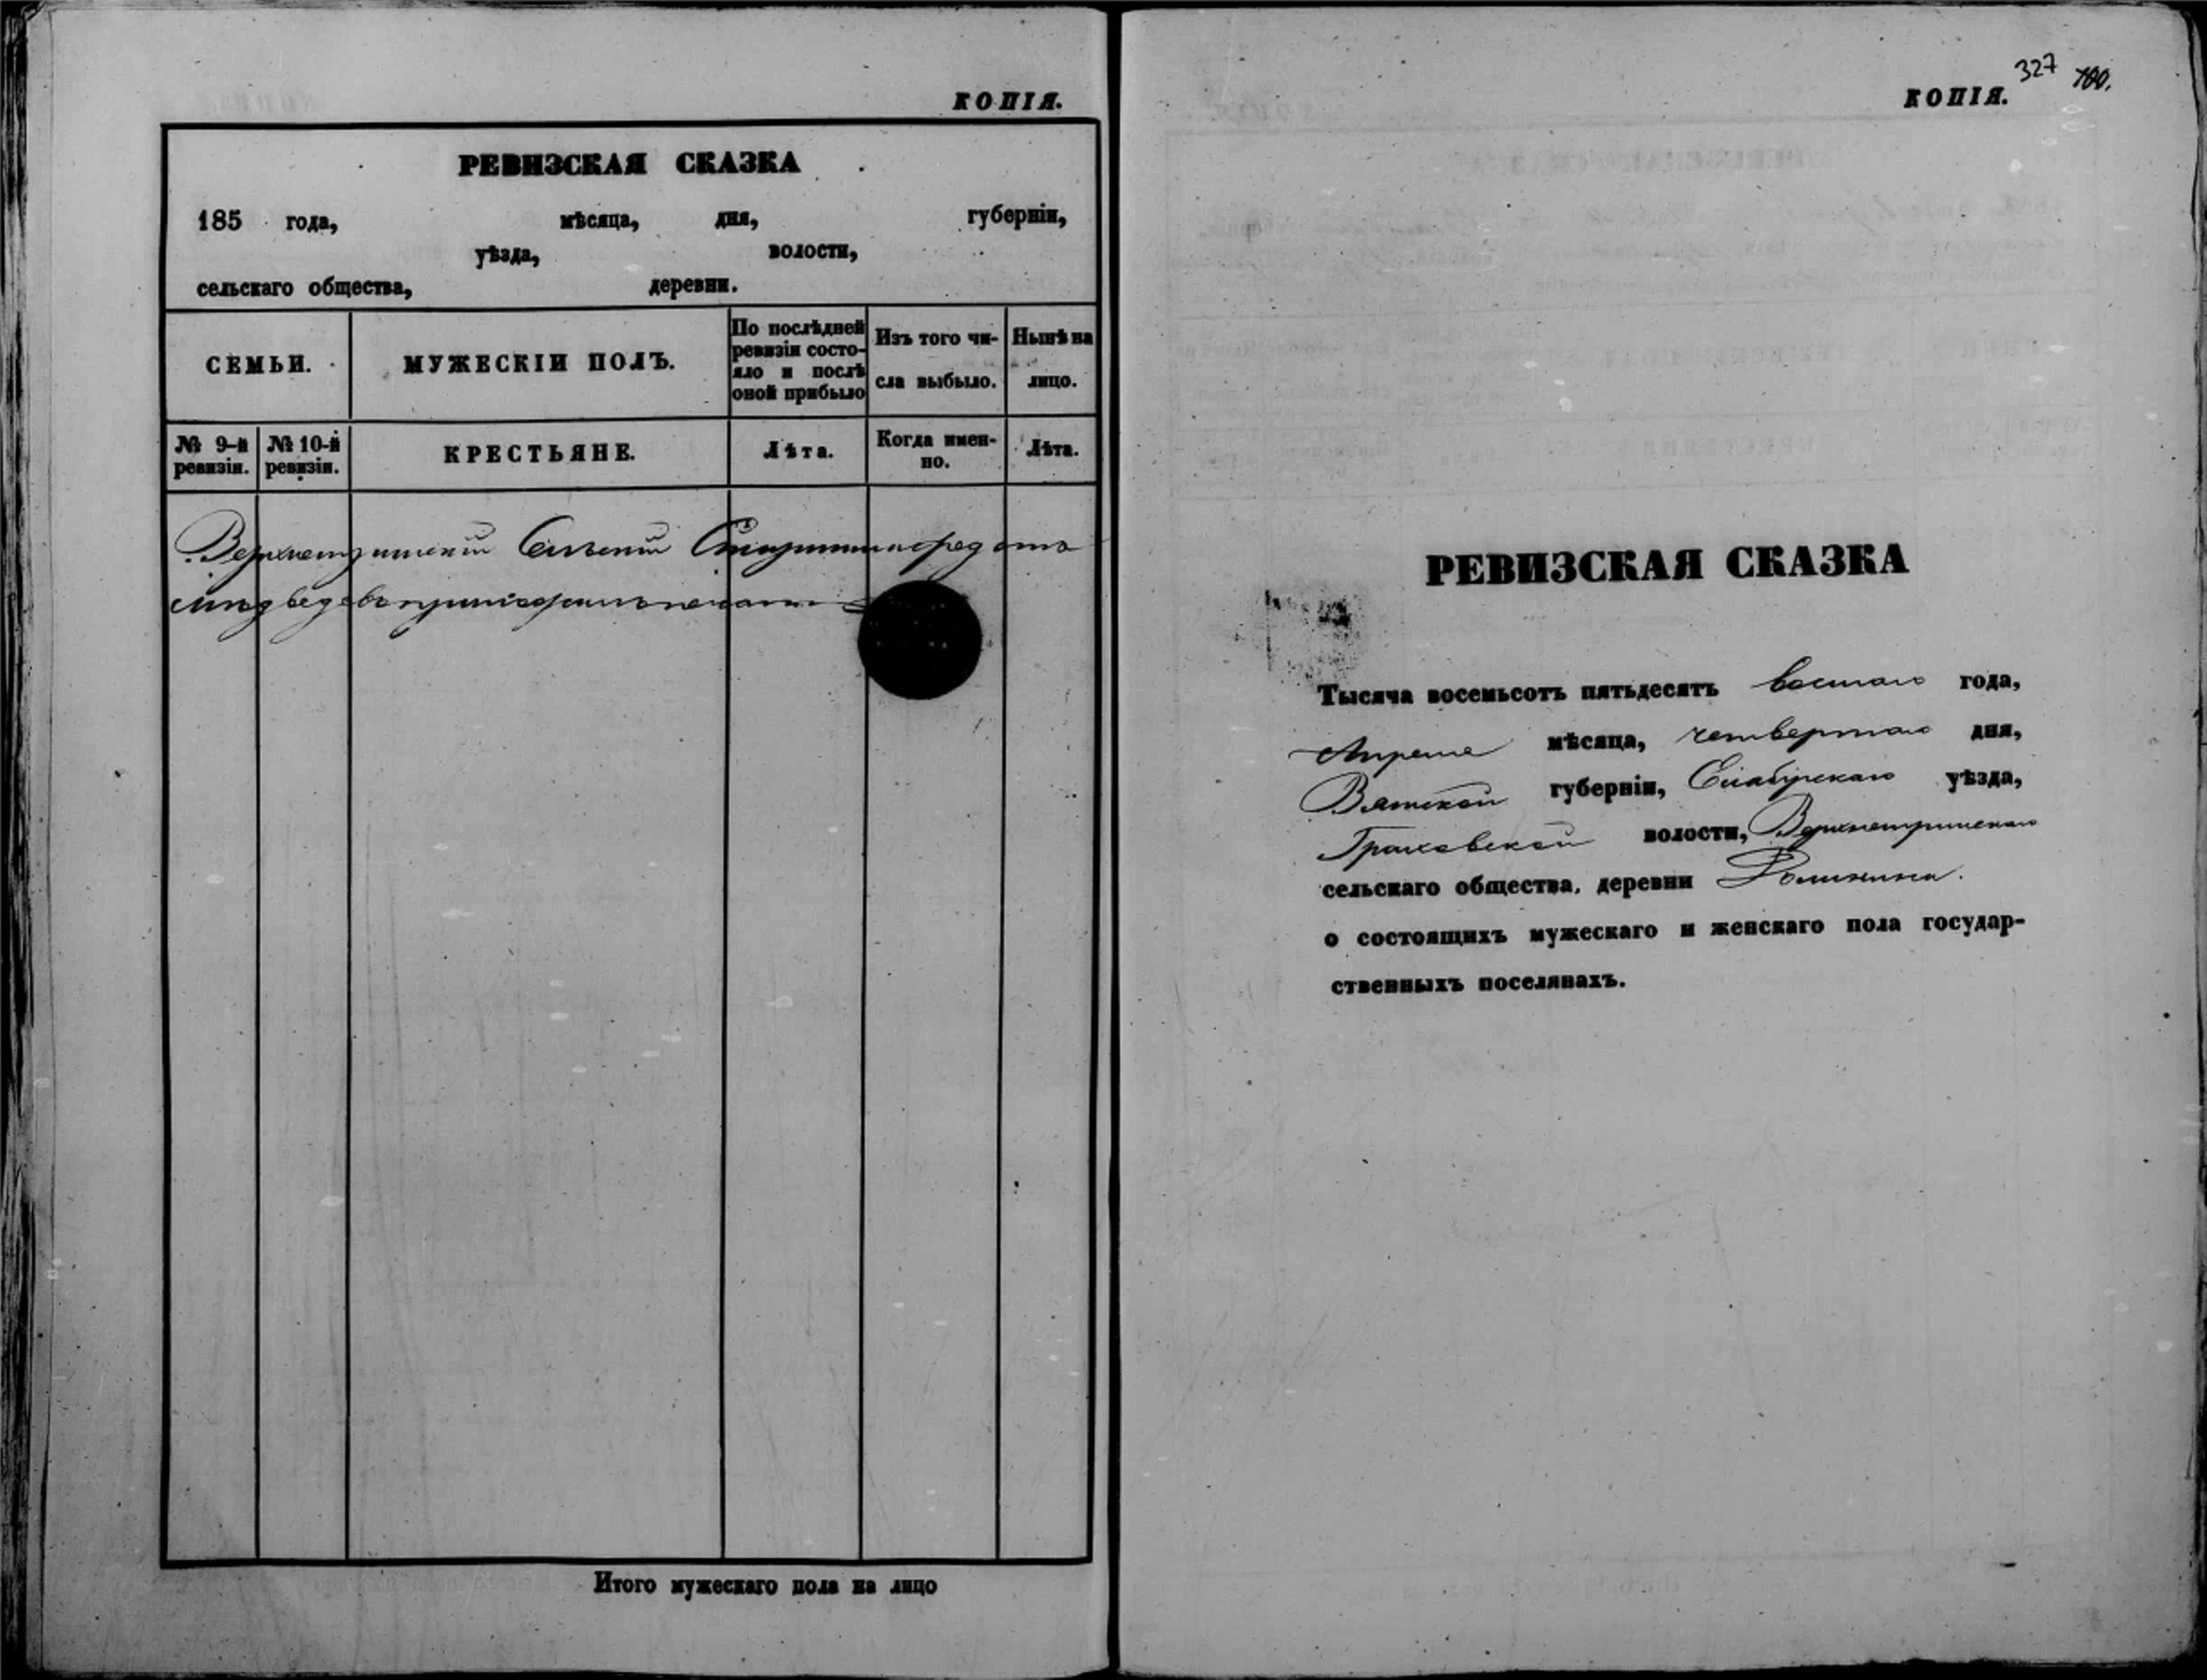 КОПІЯ.
РЕВИЗСКАЯ СКАЗКА
185 года, мѣсяца, дня, губерніи,
уѣзда, волости,
сельскаго общества, деревни.
СЕМЬИ.
МУЖЕСКІИ ПОЛЪ.
По послѣдней
ревизіи состо-
яло и послѣ
оной прибыло
Изъ того чи-
сла выбыло.
Нынѣ на
лицо.
№ 9-й
ревизіи.
№ 10-й
ревизіи.
КРЕСТЬЯНЕ.
Лѣта.
Когда имен-
но.
Лѣта.
Сельскій
печать
Итого мужескаго пола на лицо
327
100.
КОПІЯ.
РЕВИЗСКАЯ СКАЗКА
Тысяча восемьсотъ пятьдесятъ восьмаго года,
Апреля мѣсяца, четвертаго дня,
Вятской губерніи, Елабужскаго уѣзда,
Граховской волости,
сельскаго общества, деревни
о состоящихъ мужескаго и женскаго пола государ-
ственныхъ поселянахъ.